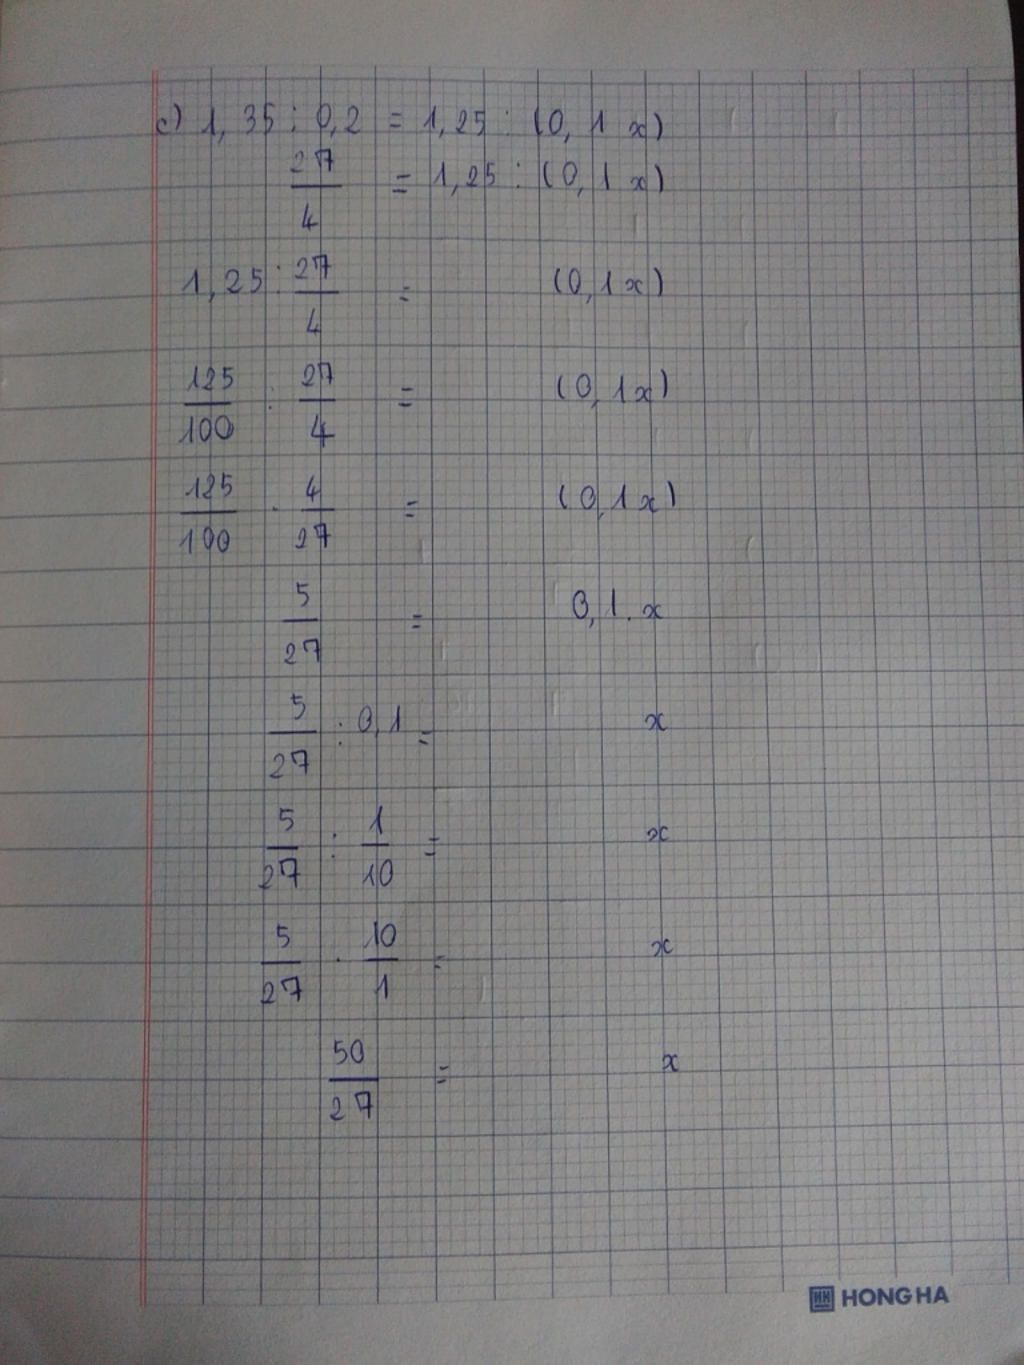 c) 1,35 : 0,2 = 1,25 : (0,1 x)
27/4 = 1,25 : (0,1 x)
1,25 : 27/4 = (0,1 x)
125/100 : 27/4 = (0,1 x)
125/100 . 4/27 = (0,1 x)
5/27 = 0,1 . x
5/27 : 0,1 = x
5/27 : 1/10 = x
5/27 . 10/1 = x
50/27 = x
HONG HA